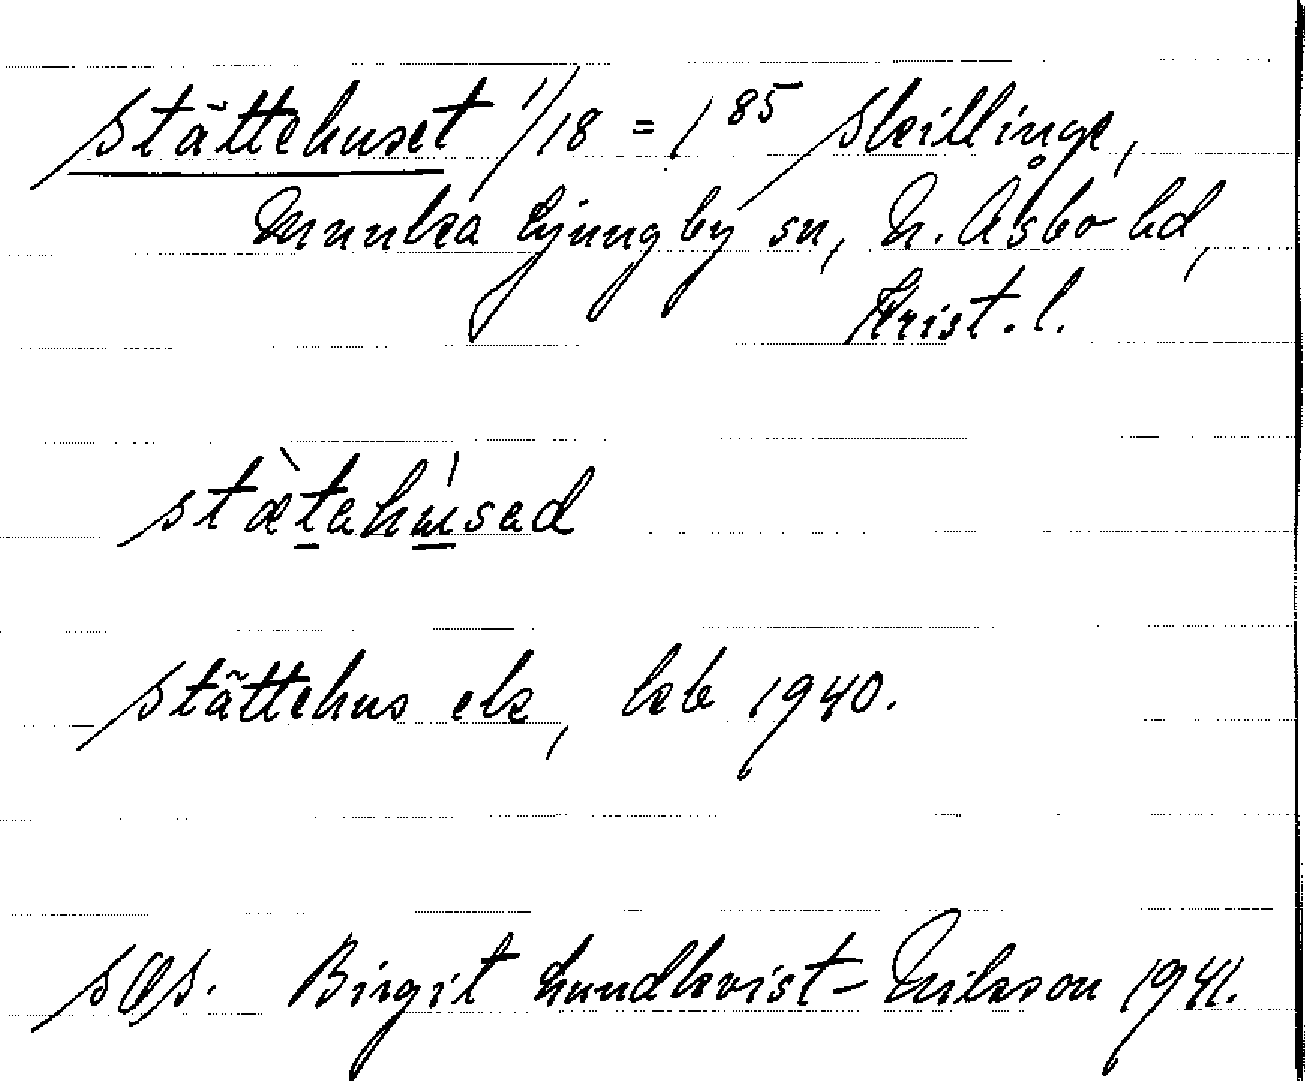 Stättehuset 1/18 = 1⁸⁵ Skillinge,
Munka Ljungby sn, N. Åsbo hd,
Krist. l.
stætahusad
Stättehus ek, kb 1940.
SOS. Birgit Lundkvist-Nilsson 1941.